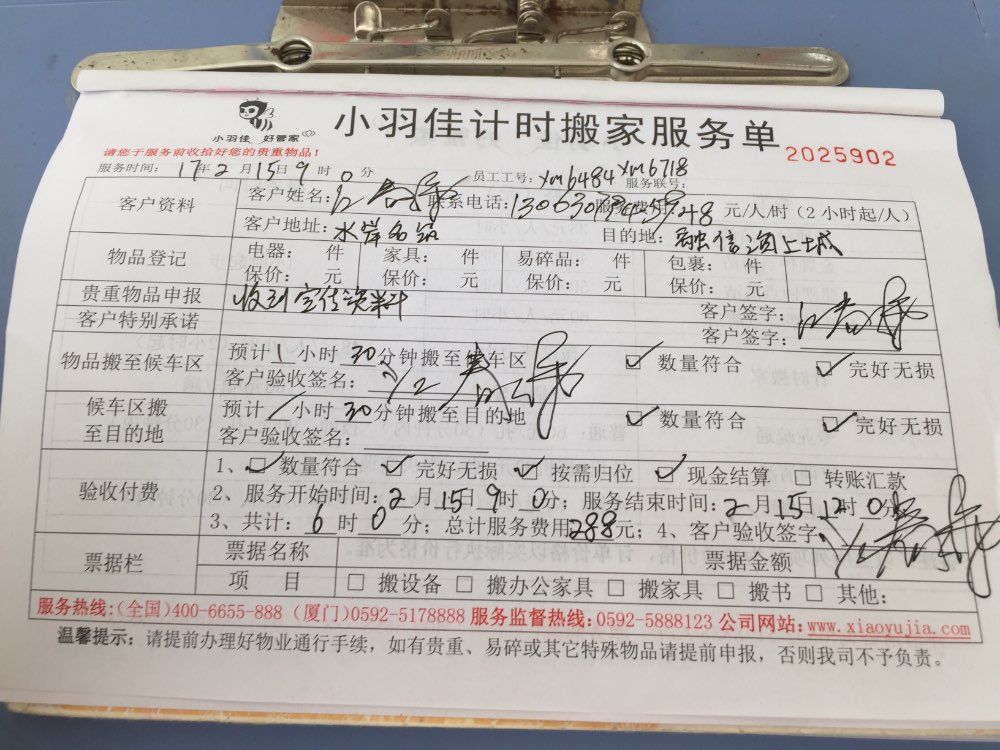 小羽佳 好管家
小羽佳计时搬家服务单
2025902
请您于服务前收拾好您的贵重物品！
服务时间：17年2月15日9时0分 员工工号：XM6484 XM6718 服务联号：
客户资料
客户姓名： 联系电话： 服务费用 48元/人/时（2小时起/人）
客户地址：水岸名筑 目的地：融信海上城
物品登记
电器： 件 家具： 件 易碎品： 件 包裹： 件
保价： 元 保价： 元 保价： 元 保价： 元
贵重物品申报 收到宣传资料 客户签字：
客户特别承诺 客户签字：
物品搬至候车区
预计1小时30分钟搬至候车区 ☑数量符合 ☑完好无损
客户验收签名：
候车区搬
至目的地
预计 小时30分钟搬至目的地 ☑数量符合 ☑完好无损
客户验收签名：
验收付费
1、☑数量符合 ☑完好无损 ☑按需归位 ☑现金结算 □转账汇款
2、服务开始时间：2月15日9时0分；服务结束时间：2月15日12时0分
3、共计：6时0分；总计服务费用288元；4、客户验收签字
票据栏
票据名称 票据金额
项 目 □搬设备 □搬办公家具 □搬家具 □搬书 □其他：
服务热线：（全国）400-6655-888（厦门）0592-5178888 服务监督热线：0592-5888123 公司网站：www.xiaoyujia.com
温馨提示：请提前办理好物业通行手续，如有贵重、易碎或其它特殊物品请提前申报，否则我司不予负责。